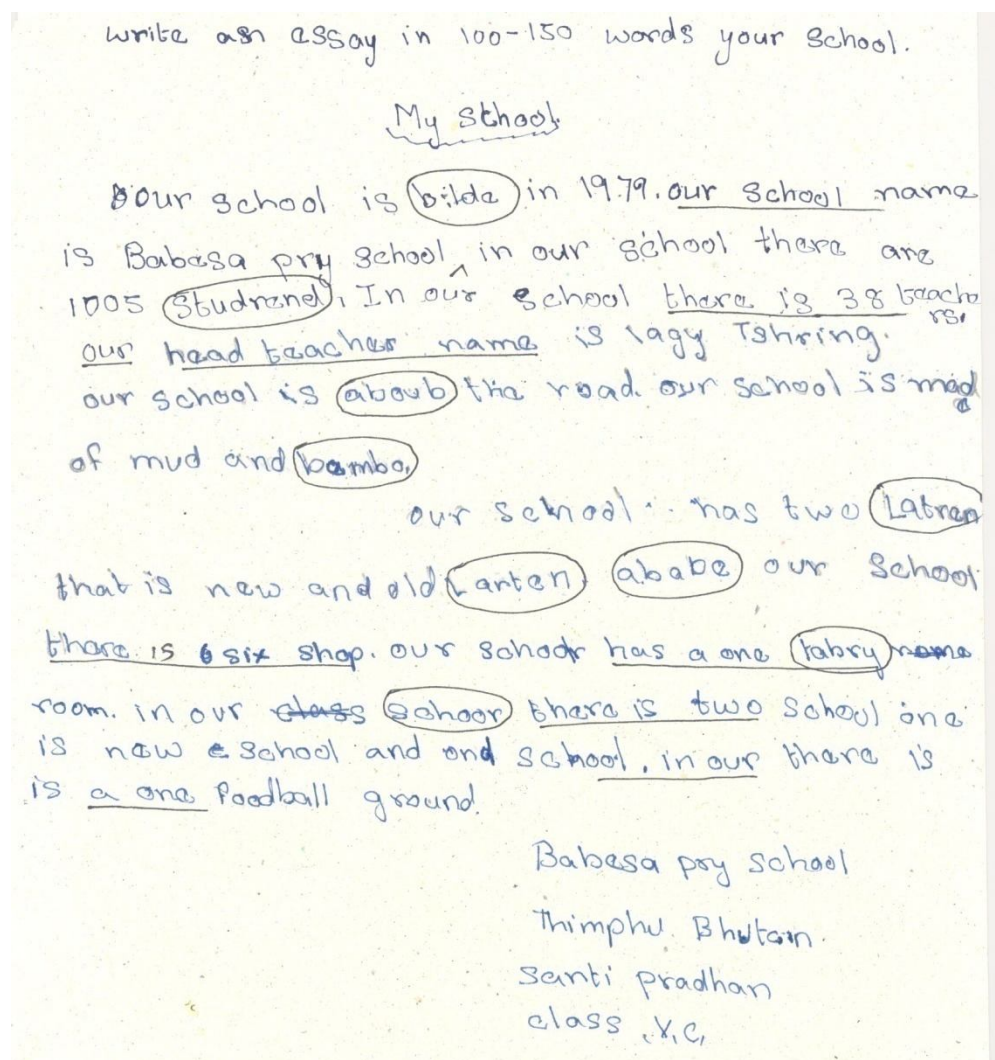 write asn essay in 100-150 words your School.
My School
Our school is bilde in 1979. our School name
is Babesa pry school in our school there are
1005 Studrend, In our school there is 38 teache
rs.
our head teacher name is lagy Tshring.
our school is aboub the road. our school is mad
e
of mud and bambo,
our school has two Latren
that is new and old Larten ababe our School
there is 6 six shop. our school has a one rabry
room. in our class School there is two School one
is new school and ond school, in our there is
is a one foodball ground.
Babesa pry school
Thimphu Bhutan.
Santi pradhan
class V.C,